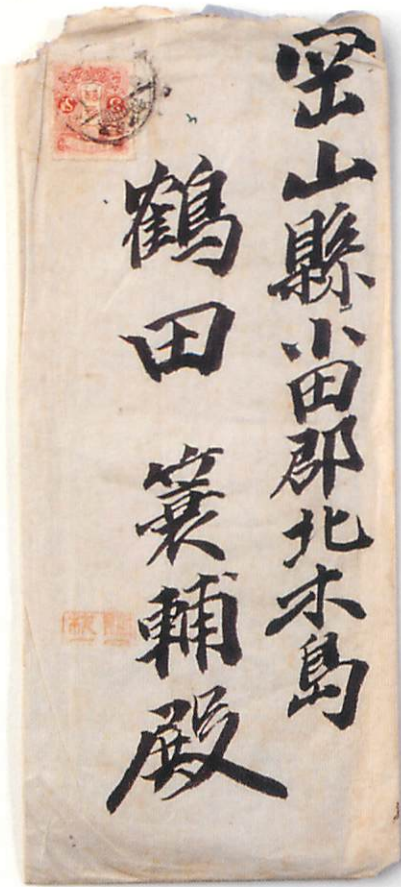 岡山縣小田郡北木島
鶴田簑輔殿